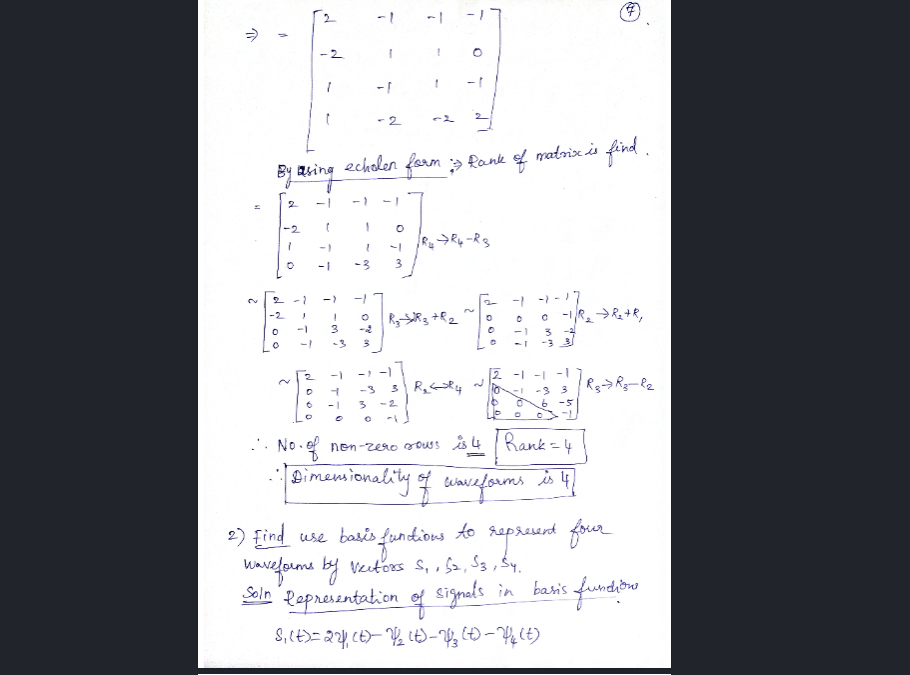 7
⇒ = [ 2 -1 -1 -1
-2 1 1 0
1 -1 1 -1
1 -2 -2 2 ]
By using echolen form :⇒ Rank of matrix is find.
= [ 2 -1 -1 -1
-2 1 1 0
1 -1 1 -1
0 -1 -3 3 ] R4→R4-R3
~ [ 2 -1 -1 -1
-2 1 1 0
0 -1 3 -2
0 -1 -3 3 ] R3→R3+R2
~ [ 2 -1 -1 -1
0 0 0 -1
0 -1 3 -2
0 -1 -3 3 ] R2→R2+R1
~ [ 2 -1 -1 -1
0 -1 -3 3
0 -1 3 -2
0 0 0 -1 ] R2↔R4
~ [ 2 -1 -1 -1
0 -1 -3 3
0 0 6 -5
0 0 0 -1 ] R3→R3-R2
∴ No. of non-zero rows is 4 Rank = 4
∴ Dimensionality of waveforms is 4
2) Find use basis functions to represent four
waveforms by vectors S1, S2, S3, S4.
Soln Representation of signals in basis functions
S1(t)=2ψ1(t)-ψ2(t)-ψ3(t)-ψ4(t)